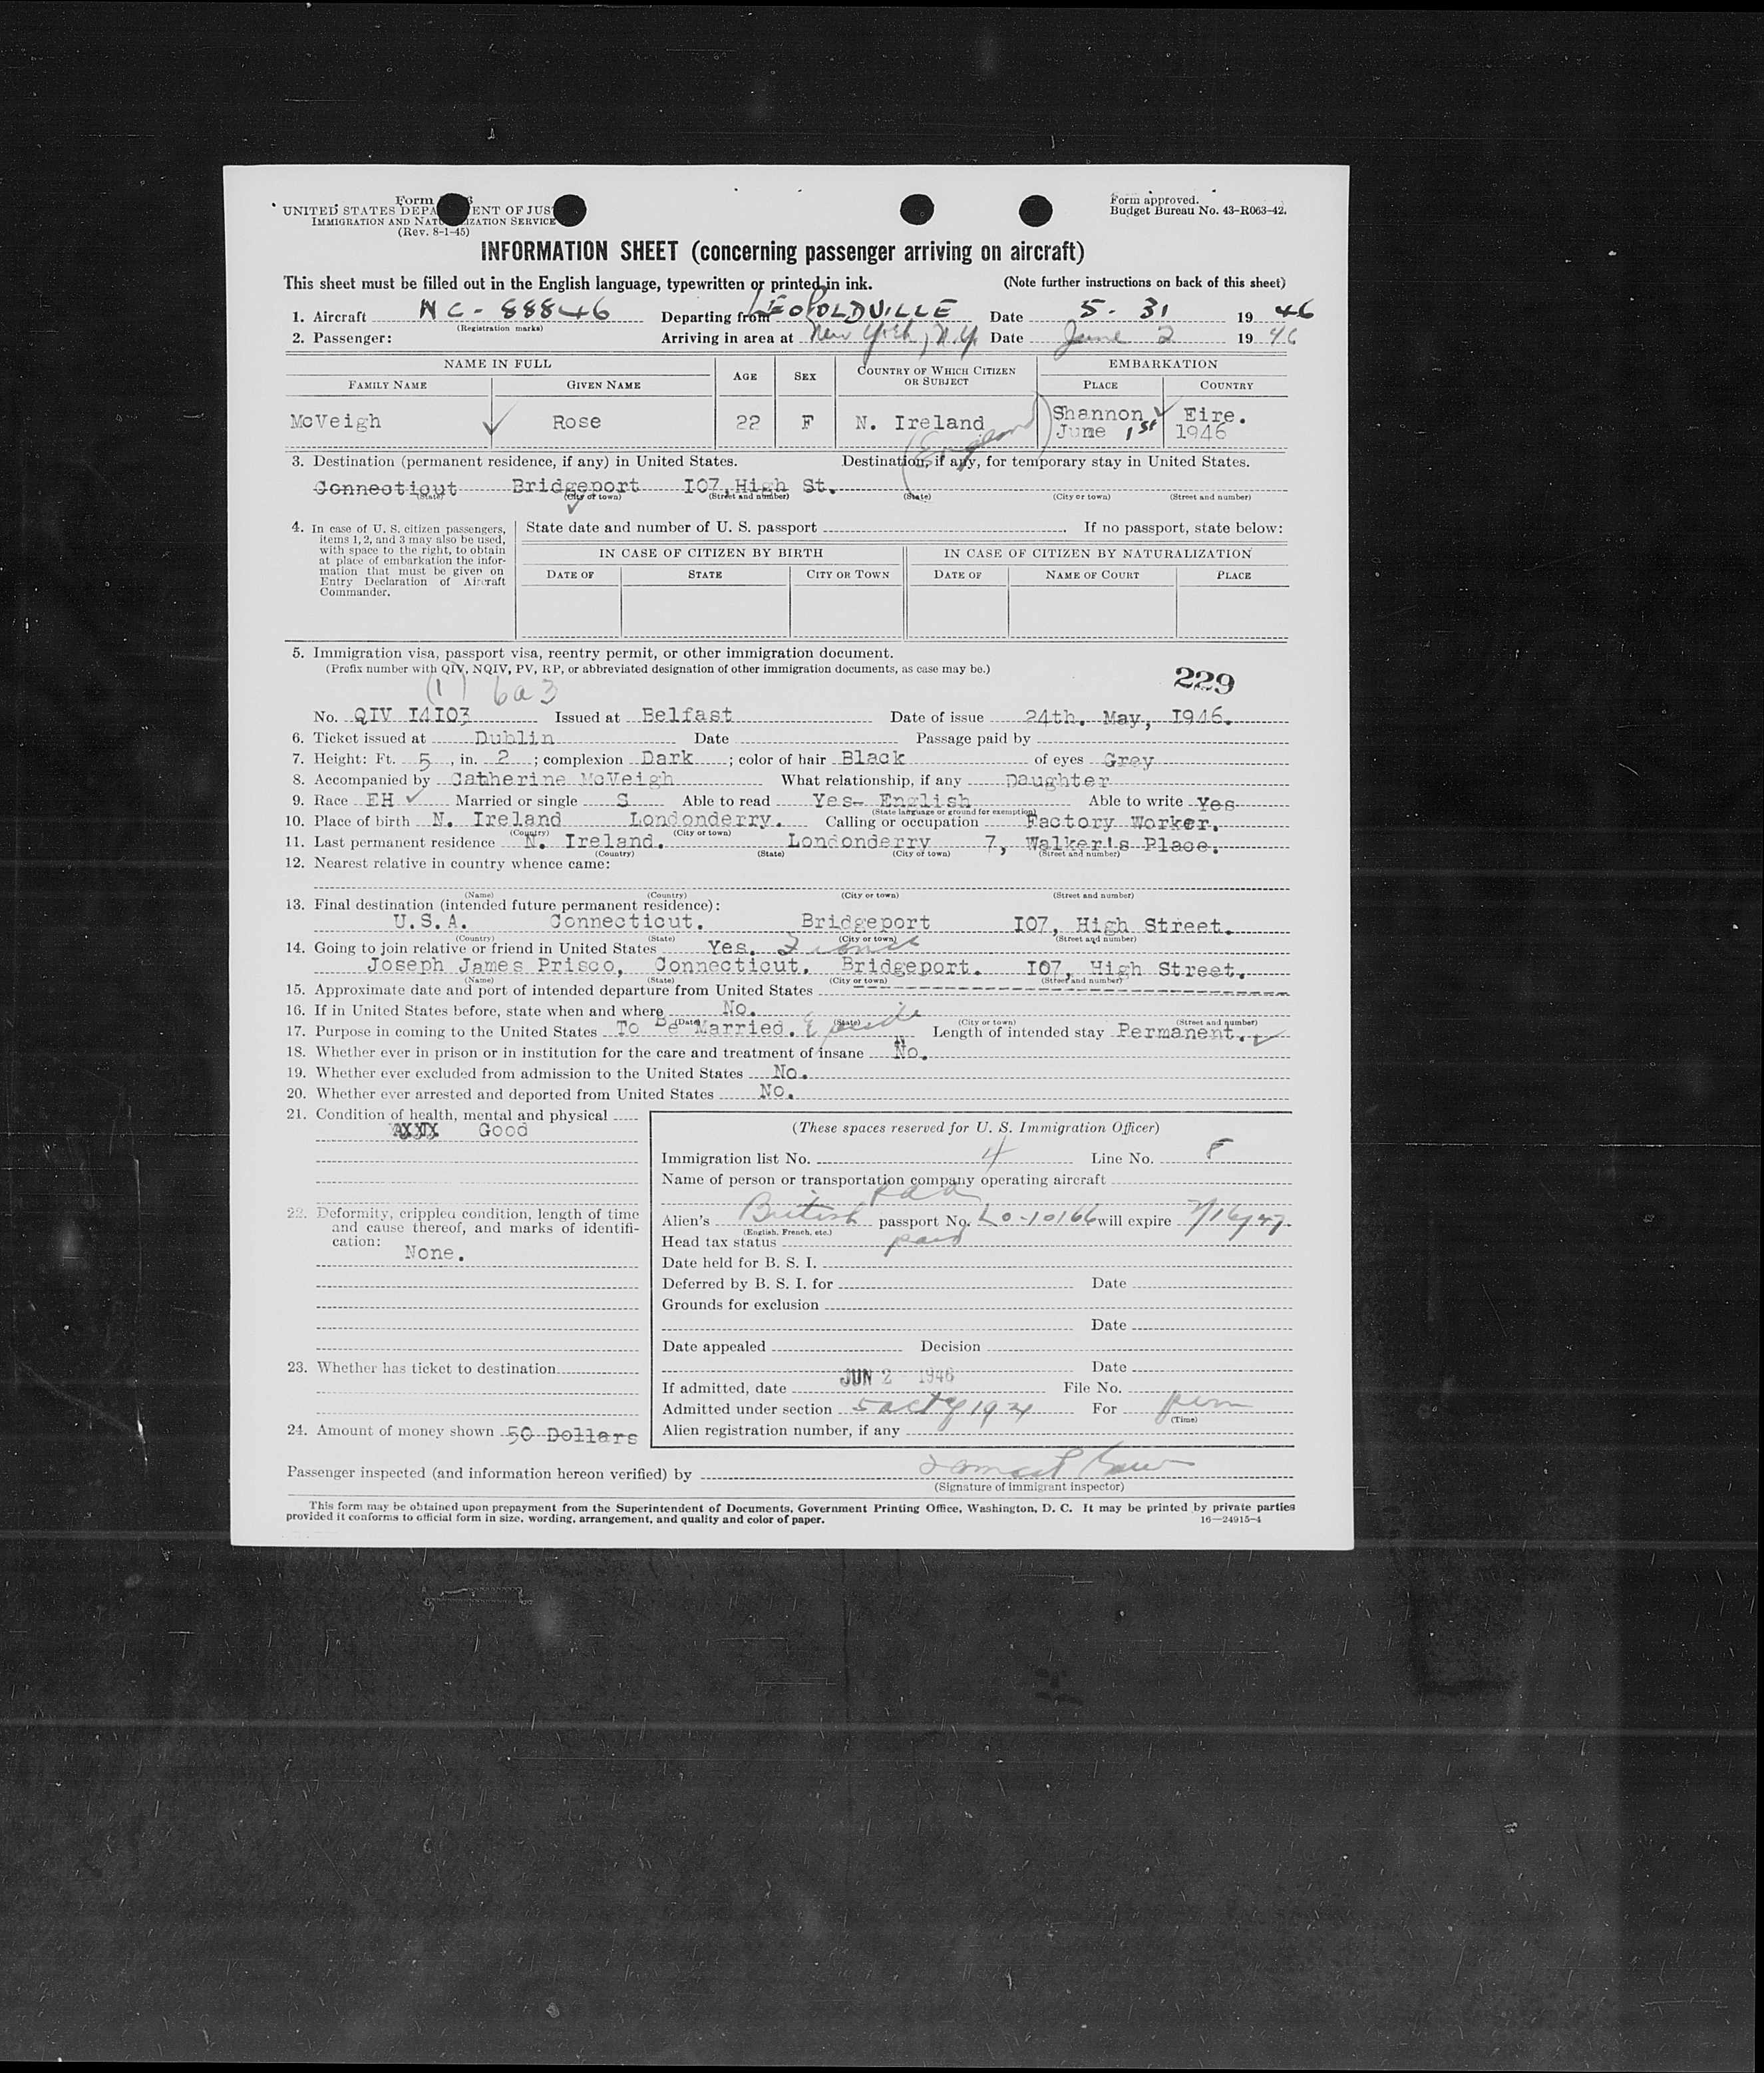 Form
UNITED STATES DEPA ENT OF JUS
IMMIGRATION AND NATU IZATION SERVICE
(Rev. 8-1-45)
Form approved.
Budget Bureau No. 43-R063-42.
INFORMATION SHEET (concerning passenger arriving on aircraft)
This sheet must be filled out in the English language, typewritten or printed in ink. (Note further instructions on back of this sheet)
1. Aircraft NC-88846 Departing from LEOPOLDVILLE Date 5-31 1946
(Registration marks)
2. Passenger: Arriving in area at New York, N.Y. Date June 2 1946
NAME IN FULL AGE SEX COUNTRY OF WHICH CITIZEN OR SUBJECT EMBARKATION
FAMILY NAME GIVEN NAME PLACE COUNTRY
McVeigh Rose 22 F N. Ireland Shannon Eire.
(England) June 1st 1946
3. Destination (permanent residence, if any) in United States. Destination, if any, for temporary stay in United States.
Connecticut Bridgeport I07, High St.
(State) (City or town) (Street and number) (State) (City or town) (Street and number)
4. In case of U. S. citizen passengers, items 1, 2, and 3 may also be used, with space to the right, to obtain at place of embarkation the information that must be given on Entry Declaration of Aircraft Commander.
State date and number of U. S. passport . If no passport, state below:
IN CASE OF CITIZEN BY BIRTH IN CASE OF CITIZEN BY NATURALIZATION
DATE OF STATE CITY OR TOWN DATE OF NAME OF COURT PLACE
5. Immigration visa, passport visa, reentry permit, or other immigration document.
(Prefix number with QIV, NQIV, PV, RP, or abbreviated designation of other immigration documents, as case may be.)
229
(1) 6a3
No. QIV I4I03 Issued at Belfast Date of issue 24th. May, I946.
6. Ticket issued at Dublin Date Passage paid by
7. Height: Ft. 5, in. 2; complexion Dark; color of hair Black of eyes Grey
8. Accompanied by Catherine McVeigh What relationship, if any Daughter
9. Race EH Married or single S Able to read Yes- English Able to write Yes
(State language or ground for exemption)
10. Place of birth N. Ireland Londonderry. Calling or occupation Factory Worker.
(Country) (City or town)
11. Last permanent residence N. Ireland. Londonderry 7, Walker's Place.
(Country) (State) (City or town) (Street and number)
12. Nearest relative in country whence came:
(Name) (Country) (City or town) (Street and number)
13. Final destination (intended future permanent residence):
U.S.A. Connecticut. Bridgeport I07, High Street.
(Country) (State) (City or town) (Street and number)
14. Going to join relative or friend in United States Yes. Fiance
Joseph James Prisco, Connecticut. Bridgeport. I07, High Street.
(Name) (State) (City or town) (Street and number)
15. Approximate date and port of intended departure from United States
16. If in United States before, state when and where No.
(Date) (State) (City or town) (Street and number)
17. Purpose in coming to the United States To Be Married. & reside Length of intended stay Permanent.
18. Whether ever in prison or in institution for the care and treatment of insane No.
19. Whether ever excluded from admission to the United States No.
20. Whether ever arrested and deported from United States No.
21. Condition of health, mental and physical
Good
22. Deformity, crippled condition, length of time and cause thereof, and marks of identification:
None.
23. Whether has ticket to destination
24. Amount of money shown 50 Dollars
(These spaces reserved for U. S. Immigration Officer)
Immigration list No. 4 Line No. 8
Name of person or transportation company operating aircraft
P a a
Alien's British passport No. Lo-10166 will expire 7/16/47
(English, French, etc.)
Head tax status paid
Date held for B. S. I.
Deferred by B. S. I. for Date
Grounds for exclusion
Date
Date appealed Decision
Date
If admitted, date JUN 2 - 1946 File No.
Admitted under section 5 act of 1924 For perm
(Time)
Alien registration number, if any
Passenger inspected (and information hereon verified) by
(Signature of immigrant inspector)
This form may be obtained upon prepayment from the Superintendent of Documents, Government Printing Office, Washington, D. C. It may be printed by private parties
provided it conforms to official form in size, wording, arrangement, and quality and color of paper. 16—24915-4